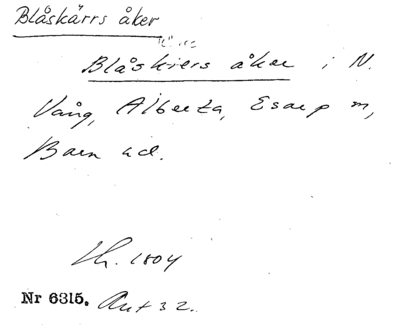 Blåskärrs åker
Blåskiers åker i N.
Vång, Alberta, Esarp m,
Bara hd.
Lh. 1804
Nr 6315. Ant 32.